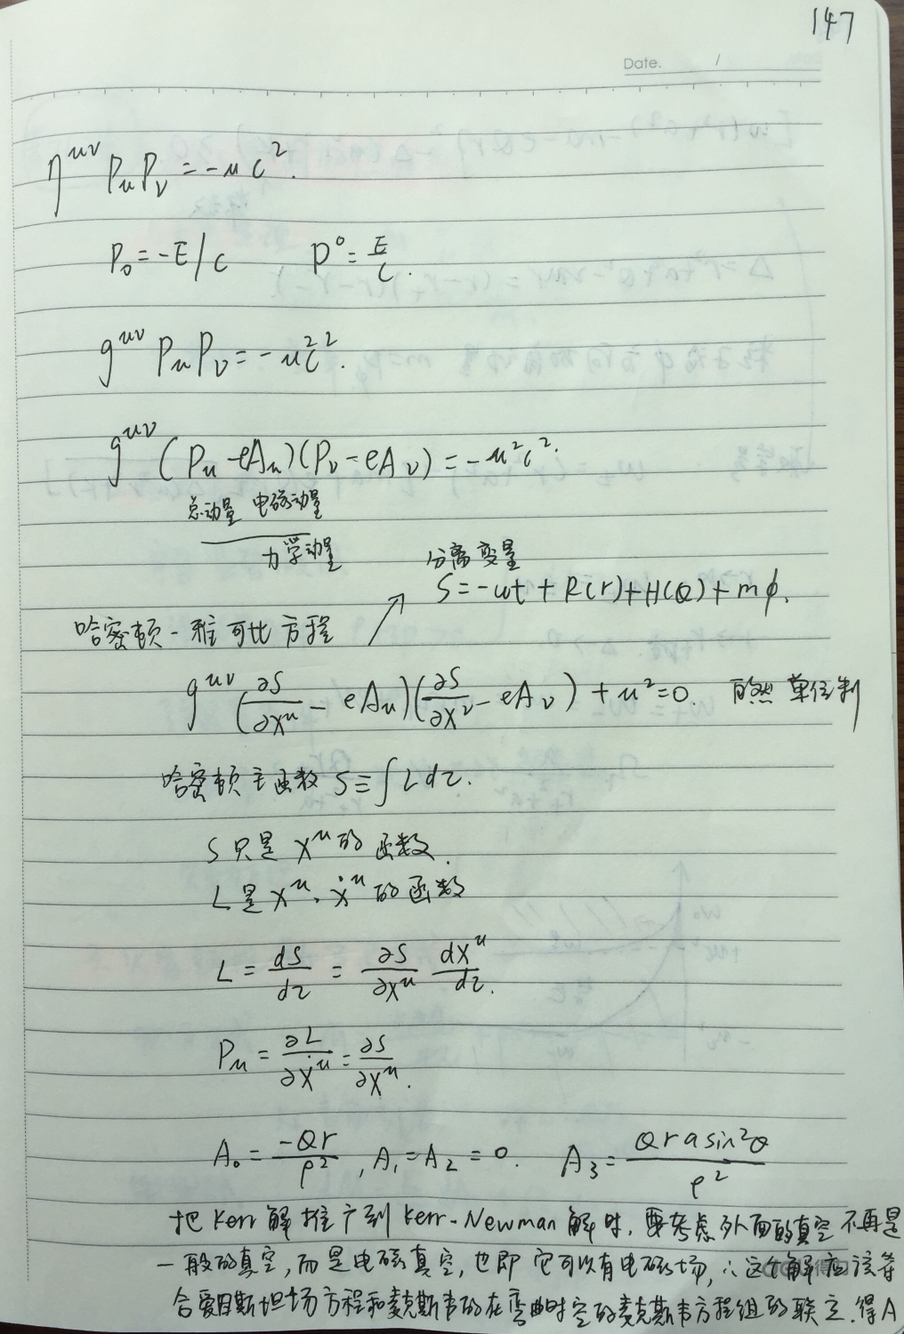 147
Date. /
η^{μν} P_μ P_ν = -μc².
P₀ = -E/c  P⁰ = E/c.
g^{μν} P_μ P_ν = -μ²c².
g^{μν} (P_μ - eA_μ)(P_ν - eA_ν) = -μ²c².
总动量 电磁动量
力学动量
分离变量
S = -ωt + R(r) + H(θ) + mφ.
哈密顿-雅可比方程
g^{μν} (∂S/∂x^μ - eA_μ)(∂S/∂x^ν - eA_ν) + μ² = 0. 自然单位制
哈密顿主函数 S ≡ ∫L dτ.
S只是 x^μ 的函数.
L是 x^μ、ẋ^μ 的函数
L = dS/dτ = ∂S/∂x^μ dx^μ/dτ.
P_μ = ∂L/∂ẋ^μ = ∂S/∂x^μ.
A₀ = -Qr/ρ², A₁ = A₂ = 0. A₃ = Qra sin²θ/ρ²
把Kerr解推广到Kerr-Newman解时, 要考虑外面的真空不再是
一般的真空, 而是电磁真空, 也即它可以有电磁场, ∴这个解应该等
合爱因斯坦场方程和麦克斯韦的在弯曲时空的麦克斯韦方程组的联立. 得A